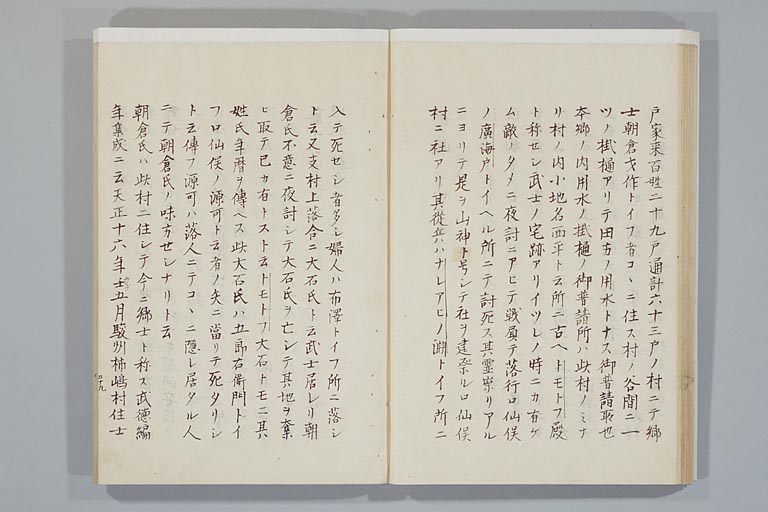 戸家来百姓二十九戸通計六十三戸ノ村ニテ郷
士朝倉才作トイフ者コヽニ住ス村ノ谷間ニ一
ツノ掛樋アリテ田方ノ用水トナス御普請所也
本郷ノ内用水ノ掛樋ノ御普請所ハ此村ノミナ
リ村ノ内小地名西平ト云所ニ古ヘトモトフ殿
ト称セシ武士ノ宅跡アリイツレノ時ニカ有ケ
ム敵ノタメニ夜討ニアヒテ戦負テ落行口仙俣
ノ廣海戸トイヘル所ニテ討死ス其霊祟リアル
ニヨリテ是ヲ山神ト号シテ社ヲ建祭ル口仙俣
村ニ社アリ其従兵ハハナレアヒノ淵トイフ所ニ
入テ死セシ者多シ婦人ハ布澤トイフ所ニ落シ
ト云又支村上落合ニ大石氏ト云武士居レリ朝
倉氏不意ニ夜討シテ大石氏ヲ亡シテ其地ヲ奪
ヒ取テ己カ有トスト云トモトフ大石トモニ其
姓氏年暦ヲ傳ヘス此大石氏ハ五郎右衛門トイ
フ口仙俣ノ源可ト云者ノ矢ニ當リテ死タリシ
ト云傳フ源可ハ落人ニテコヽニ隠レ居タル人
ニテ朝倉氏ノ味方セシナリト云
朝倉氏ハ此村ニ住シテ今ニ郷士ト称ス武徳編
年集成ニ云天正十六年壬五月駿州柿嶋村住士